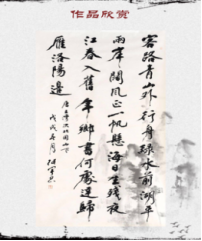 作品欣赏
客路青山外行舟綠水前潮平
兩岸闊風正一帆懸海日生殘夜
江春入舊年鄉書何處達歸
雁洛陽邊
唐王灣次北固山下